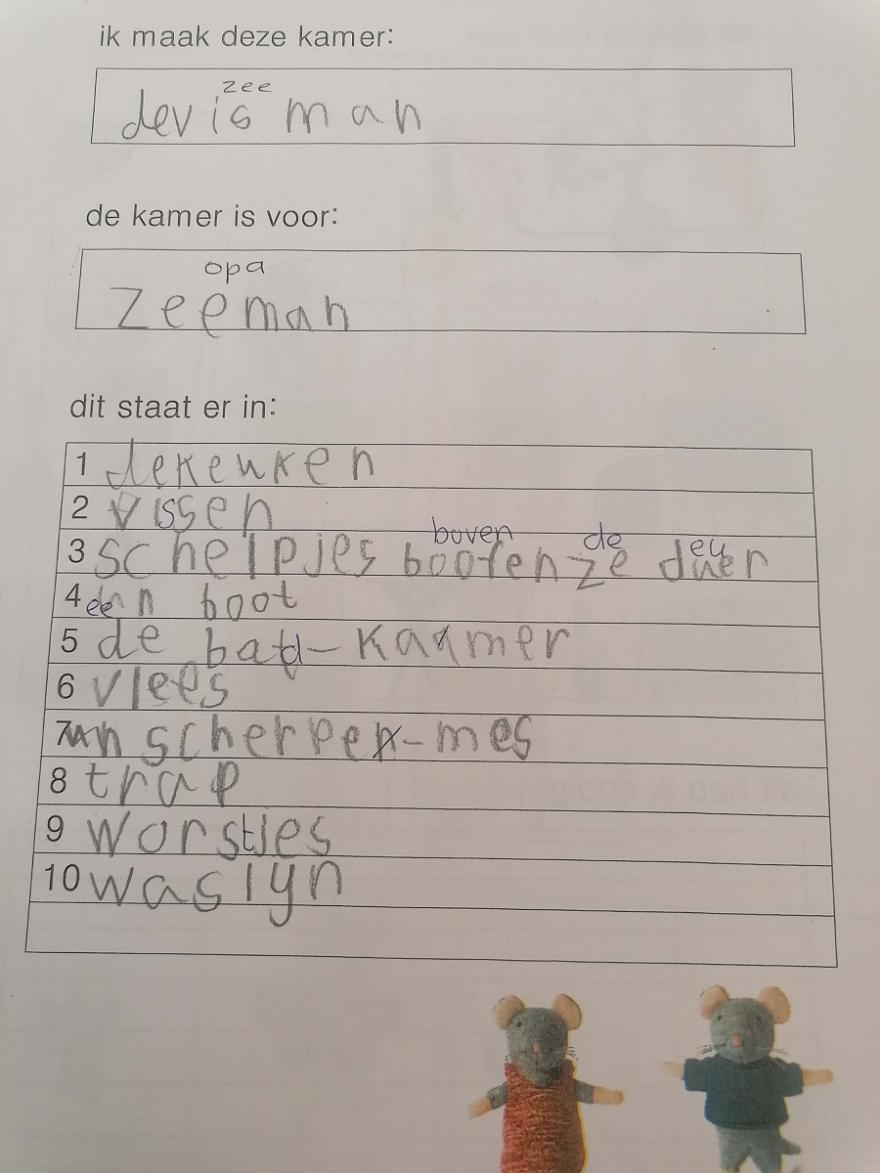 ik maak deze kamer:
zee
de vis man
de kamer is voor:
opa
zeeman
dit staat er in:
1 de keuken
2 vissen
boven de eu
3 schelpjes boofen ze duer
4 een boot
5 de bad-kaamer
6 vlees
7 un scherpen-mes
8 trap
9 worstjes
10 waslyn